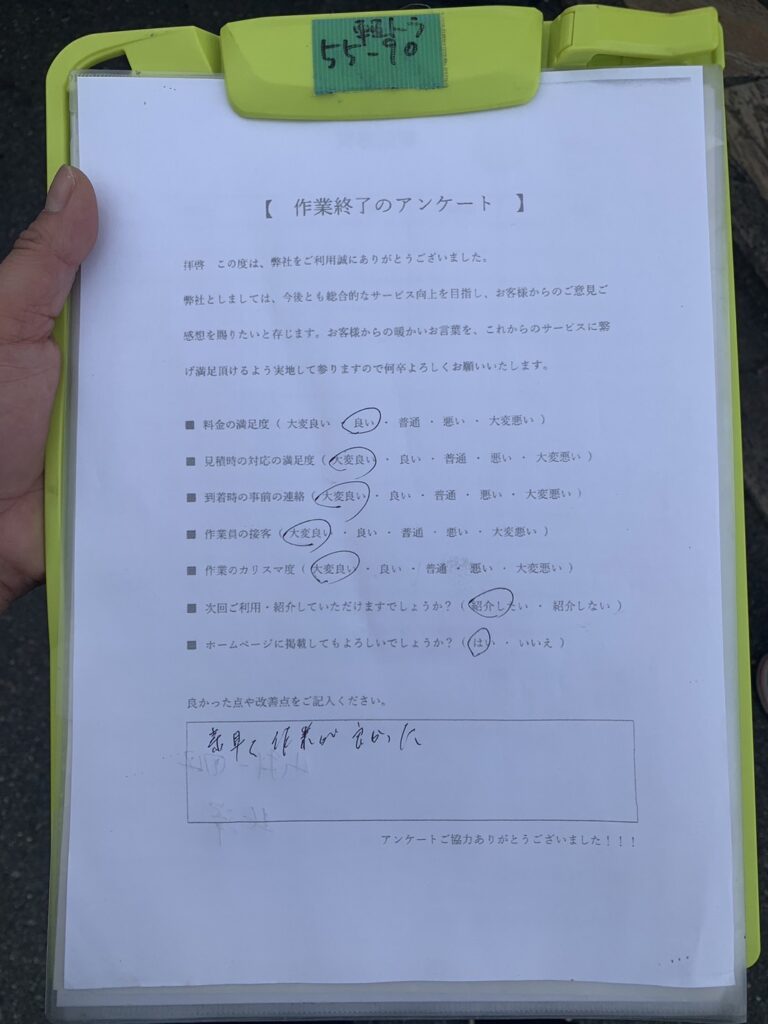 軽トラ
55-90
【 作業終了のアンケート 】
拝啓 この度は、弊社をご利用誠にありがとうございました。
弊社としましては、今後とも総合的なサービス向上を目指し、お客様からのご意見ご
感想を賜りたいと存じます。お客様からの暖かいお言葉を、これからのサービスに繋
げ満足頂けるよう実地して参りますので何卒よろしくお願いいたします。
■ 料金の満足度（ 大変良い ・ 良い ・ 普通 ・ 悪い ・ 大変悪い ）
■ 見積時の対応の満足度（ 大変良い ・ 良い ・ 普通 ・ 悪い ・ 大変悪い ）
■ 到着時の事前の連絡（ 大変良い ・ 良い ・ 普通 ・ 悪い ・ 大変悪い ）
■ 作業員の接客（ 大変良い ・ 良い ・ 普通 ・ 悪い ・ 大変悪い ）
■ 作業のカリスマ度（ 大変良い ・ 良い ・ 普通 ・ 悪い ・ 大変悪い ）
■ 次回ご利用・紹介していただけますでしょうか？（ 紹介したい ・ 紹介しない ）
■ ホームページに掲載してもよろしいでしょうか？（ はい ・ いいえ ）
良かった点や改善点をご記入ください。
素早く作業が良かった
アンケートご協力ありがとうございました！！！